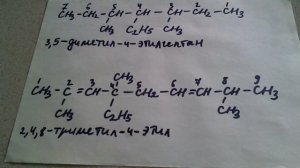 7 6 5 4 3 2 1
CH₃-CH₂-CH-CH-CH-CH₂-CH₃
CH₃ C₂H₅ CH₃
3,5-диметил-4-этилгептан
CH₃
1 2 3 4 5 6 7 8 9
CH₃-C=CH-C-CH₂-CH=CH-CH-CH₃
CH₃ C₂H₅ CH₃
2,4,8-триметил-4-этил